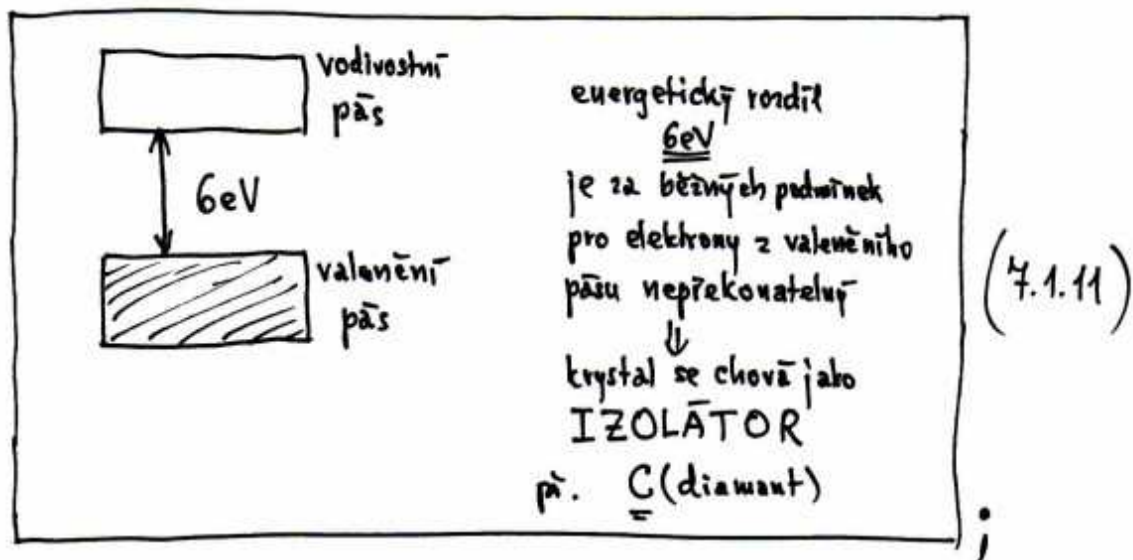 vodivostní
pás
6eV
valenční
pás
energetický rozdíl
6eV
je za běžných podmínek
pro elektrony z valenčního
pásu nepřekonatelný
⇓
krystal se chová jako
IZOLÁTOR
př. C(diamant)
(7.1.11)
;